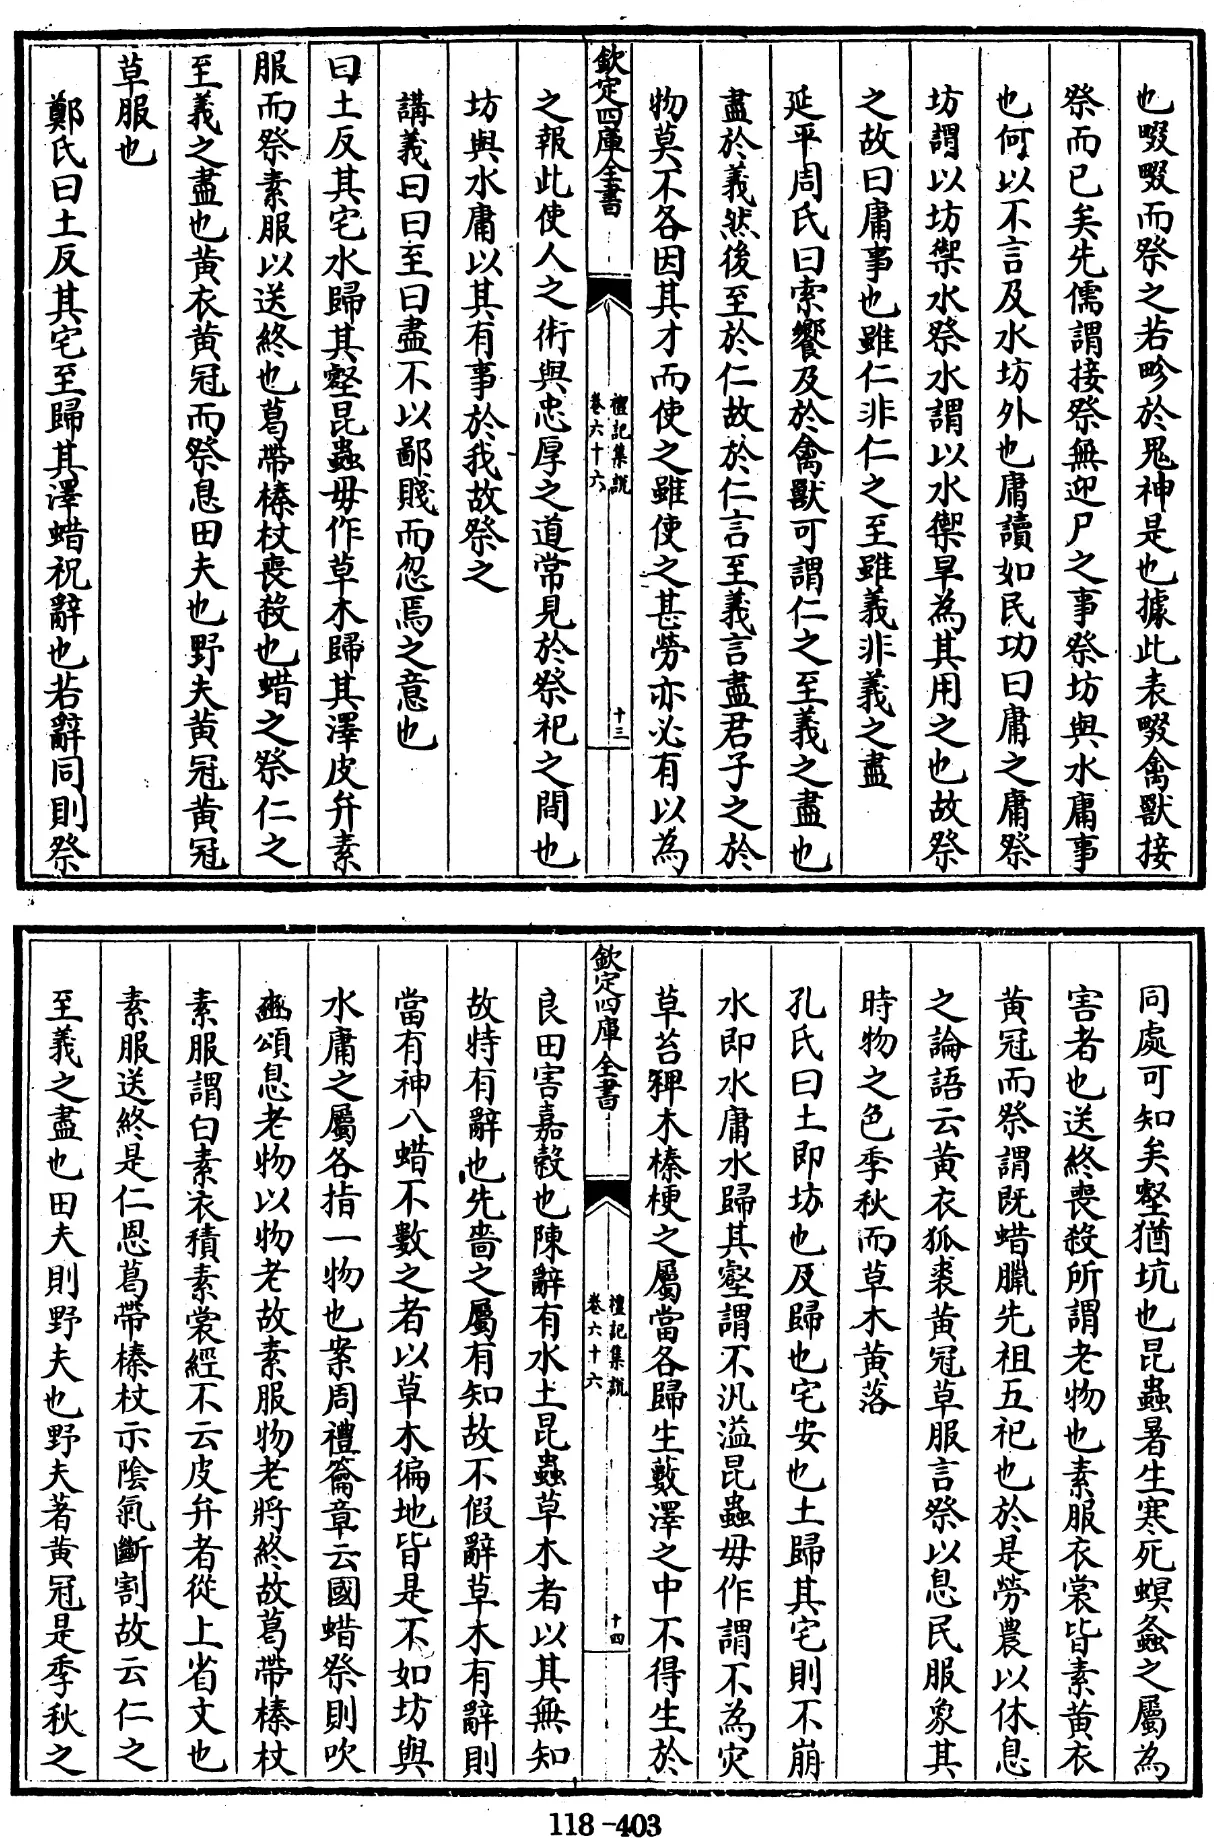 也畷畷而祭之若畛於鬼神是也據此表畷禽獸接
祭而已矣先儒謂接祭無迎尸之事祭坊與水庸事
也何以不言及水坊外也庸讀如民功曰庸之庸祭
坊謂以坊禦水祭水謂以水禦旱為其用之也故祭
之故曰庸事也雖仁非仁之至雖義非義之盡
延平周氏曰索饗及於禽獸可謂仁之至義之盡也
盡於義然後至於仁故於仁言至義言盡君子之於
物莫不各因其才而使之雖使之甚勞亦必有以為
欽定四庫全書
禮記集說
卷六十六
十三
之報此使人之術與忠厚之道常見於祭祀之間也
坊與水庸以其有事於我故祭之
講義曰曰至曰盡不以鄙賤而忽焉之意也
曰土反其宅水歸其壑昆蟲毋作草木歸其澤皮弁素
服而祭素服以送終也葛帶榛杖喪殺也蜡之祭仁之
至義之盡也黃衣黃冠而祭息田夫也野夫黃冠黃冠
草服也
鄭氏曰土反其宅至歸其澤蜡祝辭也若辭同則祭
同處可知矣壑猶坑也昆蟲暑生寒死螟螽之屬為
害者也送終喪殺所謂老物也素服衣裳皆素黃衣
黃冠而祭謂既蜡臘先祖五祀也於是勞農以休息
之論語云黃衣狐裘黃冠草服言祭以息民服象其
時物之色季秋而草木黃落
孔氏曰土即坊也反歸也宅安也土歸其宅則不崩
水即水庸水歸其壑謂不汎溢昆蟲毋作謂不為災
草苔稗木榛梗之屬當各歸生藪澤之中不得生於
欽定四庫全書
禮記集說
卷六十六
十四
良田害嘉穀也陳辭有水土昆蟲草木者以其無知
故特有辭也先嗇之屬有知故不假辭草木有辭則
當有神八蜡不數之者以草木徧地皆是不如坊與
水庸之屬各指一物也案周禮籥章云國蜡祭則吹
豳頌息老物以物老故素服物老將終故葛帶榛杖
素服謂白素衣積素裳經不云皮弁者從上省文也
素服送終是仁恩葛帶榛杖示陰氣斷割故云仁之
至義之盡也田夫則野夫也野夫著黃冠是季秋之
118-403